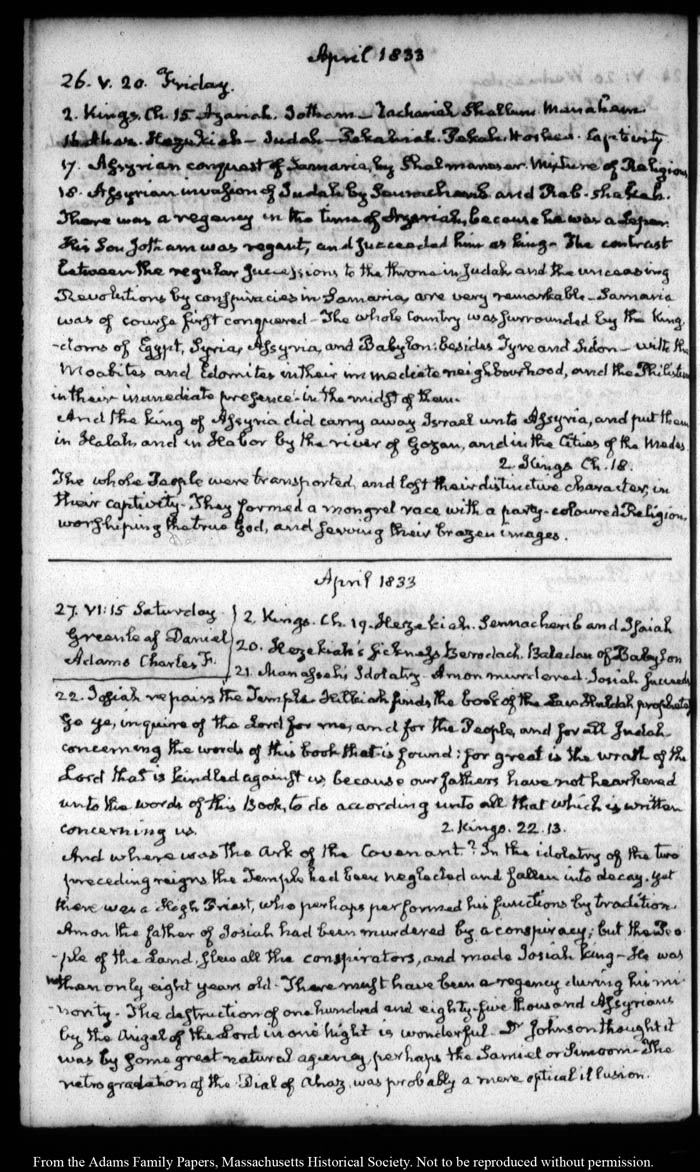 April 1833
26. V. 20. Friday.
2. Kings. Ch. 15. Azariah. Jotham – Zachariah Shallum. Menahem.
16 Ahaz. Hezekiah – Judah – Pekahiah. Pekah. Hoshea. Captivity
17. Assyrian conquest of Samaria, by Shalmaneser. Mixture of Religion
18. Assyrian invasion of Judah by Sennacherib and Rab-shakeh.
There was a regency in the time of Azariah, because he was a Leper.
His Son Jotham was regent, and succeeded him as king – The contrast
between the regular successions to the throne in Judah and the unceasing
Revolutions by conspiracies in Samaria, are very remarkable – Samaria
was of course first conquered – The whole Country was surrounded by the King-
-doms of Egypt, Syria, Assyria, and Babylon: besides Tyre and Sidon – with the
Moabites and Edomites in their immediate neighbourhood, and the Philistines
in their immediate presence – in the midst of them.
And the king of Assyria did carry away Israel unto Assyria, and put them
in Halah, and in Habor by the river of Gozan, and in the Cities of the Medes.
2. Kings Ch. 18.
The whole People were transported, and lost their distinctive character, in
their captivity. They formed a mongrel race with a party-coloured Religion,
worshiping the true God, and serving their brazen images.
April 1833
27. VI: 15 Saturday
Greenleaf Daniel
Adams Charles F.
2. Kings. Ch. 19. Hezekiah. Sennacherib and Isaiah
20. Hezekiah's sickness Berodach. Baladan of Babylon
21. Manasseh's Idolatry – Amon murdered. Josiah succeeds
22. Josiah repairs the Temple. Hilkiah finds the book of the Law Huldah prophetess
Go ye, inquire of the Lord for me, and for the People, and for all Judah
concerning the words of this book that is found: for great is the wrath of the
Lord that is kindled against us because our fathers have not hearkened
unto the words of this Book, to do according unto all that which is written
concerning us. 2. Kings. 22. 13.
And where was the Ark of the Covenant? In the idolatry of the two
preceding reigns the Temple had been neglected and fallen into decay. yet
there was a High Priest, who perhaps performed his functions by tradition.
Amon the father of Josiah had been murdered by a conspiracy; but the Peo-
-ple of the Land, slew all the conspirators, and made Josiah king – He was
then only eight years old – There must have been a regency during his mi-
-nority – The destruction of one hundred and eighty-five thousand Assyrians
by the Angel of the Lord in one night is wonderful – Dr Johnson thought it
was by some great natural agency, perhaps the Samiel or Simoom – The
retrogradation of the Dial of Ahaz, was probably a mere optical illusion.
From the Adams Family Papers, Massachusetts Historical Society. Not to be reproduced without permission.